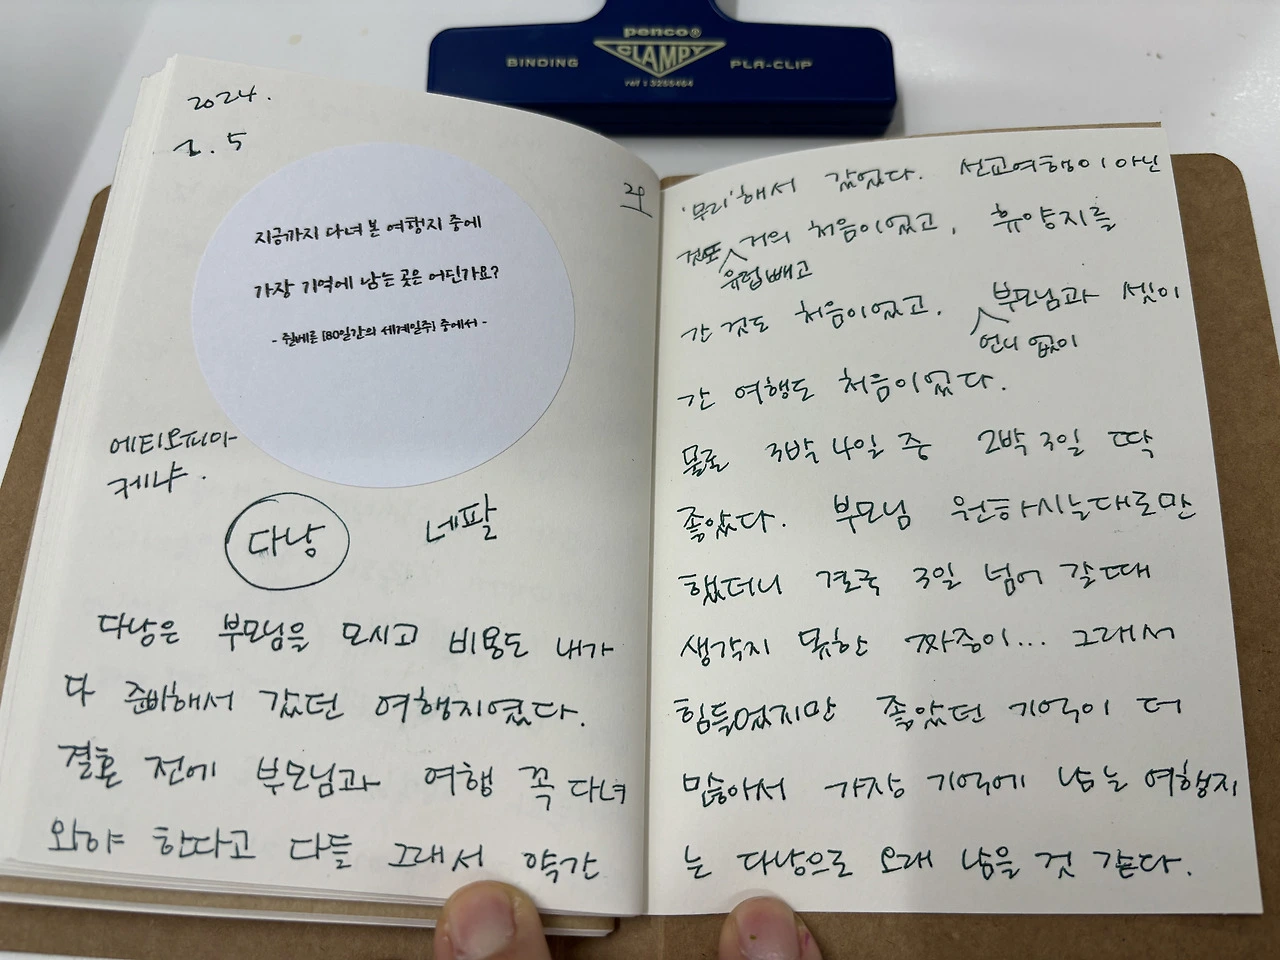 penco®
CLAMPY
BINDING
PLA-CLIP
2024.
2. 5
지금까지 다녀 본 여행지 중에
가장 기억에 남는 곳은 어딘가요?
- 쥘베른 [80일간의 세계일주] 중에서 -
에티오피아
케냐.
다낭
네팔
다낭은 부모님을 모시고 비용도 내가
다 준비해서 갔던 여행지였다.
결혼 전에 부모님과 여행 꼭 다녀
와야 한다고 다들 그래서 약간
'무리'해서 갔었다. 선교여행이 아닌
것도 거의 처음이었고, 휴양지를
유럽빼고
간 것도 처음이었고. 부모님과 셋이
언니 없이
간 여행도 처음이었다.
물론 3박 4일 중 2박 3일 딱
좋았다. 부모님 원하시는대로만
했더니 결국 3일 넘어 갈때
생각지 못한 짜증이... 그래서
힘들었지만 좋았던 기억이 더
많아서 가장 기억에 남는 여행지
는 다낭으로 오래 남을 것 같다.